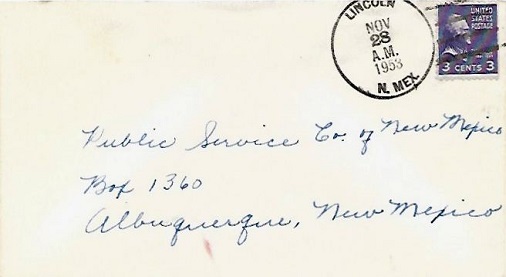 LINCOLN
NOV
28
A.M.
1953
N. MEX.
UNITED
STATES
POSTAGE
3 CENTS 3
Public Service Co. of New Mexico
Box 1360
Albuquerque, New Mexico